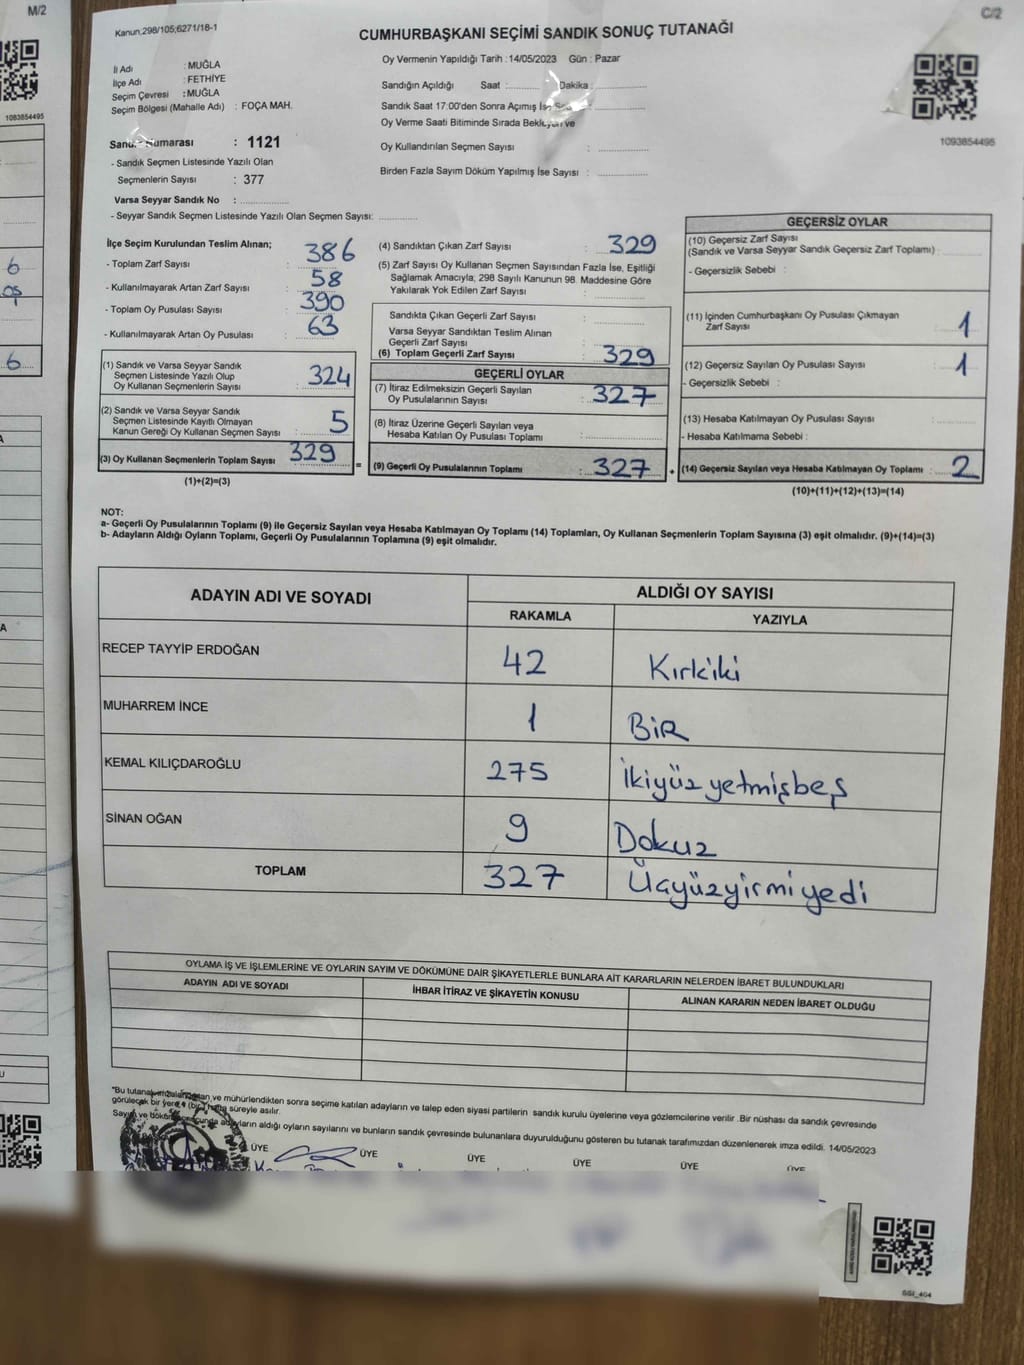 M/2
C/2
Kanun,298/105;6271/18-1
CUMHURBAŞKANI SEÇİMİ SANDIK SONUÇ TUTANAĞI
İl Adı : MUĞLA
İlçe Adı : FETHİYE
Seçim Çevresi : MUĞLA
Seçim Bölgesi (Mahalle Adı) : FOÇA MAH.
Oy Vermenin Yapıldığı Tarih : 14/05/2023 Gün : Pazar
Sandığın Açıldığı Saat : Dakika :
Sandık Saat 17:00'den Sonra Açımış İse
Oy Verme Saati Bitiminde Sırada Bekleyen ve
Oy Kullandırılan Seçmen Sayısı :
Birden Fazla Sayım Döküm Yapılmış İse Sayısı :
1083854495
1093854495
Numarası : 1121
- Sandık Seçmen Listesinde Yazılı Olan
Seçmenlerin Sayısı : 377
Varsa Seyyar Sandık No :
- Seyyar Sandık Seçmen Listesinde Yazılı Olan Seçmen Sayısı:
İlçe Seçim Kurulundan Teslim Alınan;
- Toplam Zarf Sayısı : 386
- Kullanılmayarak Artan Zarf Sayısı : 58
- Toplam Oy Pusulası Sayısı : 390
- Kullanılmayarak Artan Oy Pusulası : 63
(1) Sandık ve Varsa Seyyar Sandık
Seçmen Listesinde Yazılı Olup
Oy Kullanan Seçmenlerin Sayısı : 324
(2) Sandık ve Varsa Seyyar Sandık
Seçmen Listesinde Kayıtlı Olmayan
Kanun Gereği Oy Kullanan Seçmen Sayısı : 5
(3) Oy Kullanan Seçmenlerin Toplam Sayısı 329
(1)+(2)=(3)
(4) Sandıktan Çıkan Zarf Sayısı : 329
(5) Zarf Sayısı Oy Kullanan Seçmen Sayısından Fazla İse, Eşitliği
Sağlamak Amacıyla; 298 Sayılı Kanunun 98. Maddesine Göre
Yakılarak Yok Edilen Zarf Sayısı :
Sandıkta Çıkan Geçerli Zarf Sayısı :
Varsa Seyyar Sandıktan Teslim Alınan
Geçerli Zarf Sayısı :
(6) Toplam Geçerli Zarf Sayısı : 329
GEÇERLİ OYLAR
(7) İtiraz Edilmeksizin Geçerli Sayılan
Oy Pusulalarının Sayısı : 327
(8) İtiraz Üzerine Geçerli Sayılan veya
Hesaba Katılan Oy Pusulası Toplamı :
= (9) Geçerli Oy Pusulalarının Toplamı : 327
GEÇERSİZ OYLAR
(10) Geçersiz Zarf Sayısı
(Sandık ve Varsa Seyyar Sandık Geçersiz Zarf Toplamı) :
- Geçersizlik Sebebi :
(11) İçinden Cumhurbaşkanı Oy Pusulası Çıkmayan
Zarf Sayısı : 1
(12) Geçersiz Sayılan Oy Pusulası Sayısı : 1
- Geçersizlik Sebebi :
(13) Hesaba Katılmayan Oy Pusulası Sayısı :
- Hesaba Katılmama Sebebi :
+ (14) Geçersiz Sayılan veya Hesaba Katılmayan Oy Toplamı : 2
(10)+(11)+(12)+(13)=(14)
NOT:
a- Geçerli Oy Pusulalarının Toplamı (9) ile Geçersiz Sayılan veya Hesaba Katılmayan Oy Toplamı (14) Toplamları, Oy Kullanan Seçmenlerin Toplam Sayısına (3) eşit olmalıdır. (9)+(14)=(3)
b- Adayların Aldığı Oyların Toplamı, Geçerli Oy Pusulalarının Toplamına (9) eşit olmalıdır.
ADAYIN ADI VE SOYADI ALDIĞI OY SAYISI
RAKAMLA YAZIYLA
RECEP TAYYİP ERDOĞAN 42 Kırkiki
MUHARREM İNCE 1 BİR
KEMAL KILIÇDAROĞLU 275 İkiyüz yetmişbeş
SİNAN OĞAN 9 Dokuz
TOPLAM 327 Üçyüzyirmiyedi
OYLAMA İŞ VE İŞLEMLERİNE VE OYLARIN SAYIM VE DÖKÜMÜNE DAİR ŞİKAYETLERLE BUNLARA AİT KARARLARIN NELERDEN İBARET BULUNDUKLARI
ADAYIN ADI VE SOYADI İHBAR İTİRAZ VE ŞİKAYETİN KONUSU ALINAN KARARIN NEDEN İBARET OLDUĞU
"Bu tutanak ve mühürlendikten sonra seçime katılan adayların ve talep eden siyasi partilerin sandık kurulu üyelerine veya gözlemcilerine verilir .Bir nüshası da sandık çevresinde
görülecek bir yere (bir) hafta süreyle asılır.
Sayım ve döküm adayların aldığı oyların sayılarını ve bunların sandık çevresinde bulunanlara duyurulduğunu gösteren bu tutanak tarafımızdan düzenlenerek imza edildi. 14/05/2023
ÜYE ÜYE ÜYE ÜYE ÜYE ÜYE
6
05
6
SSI_404